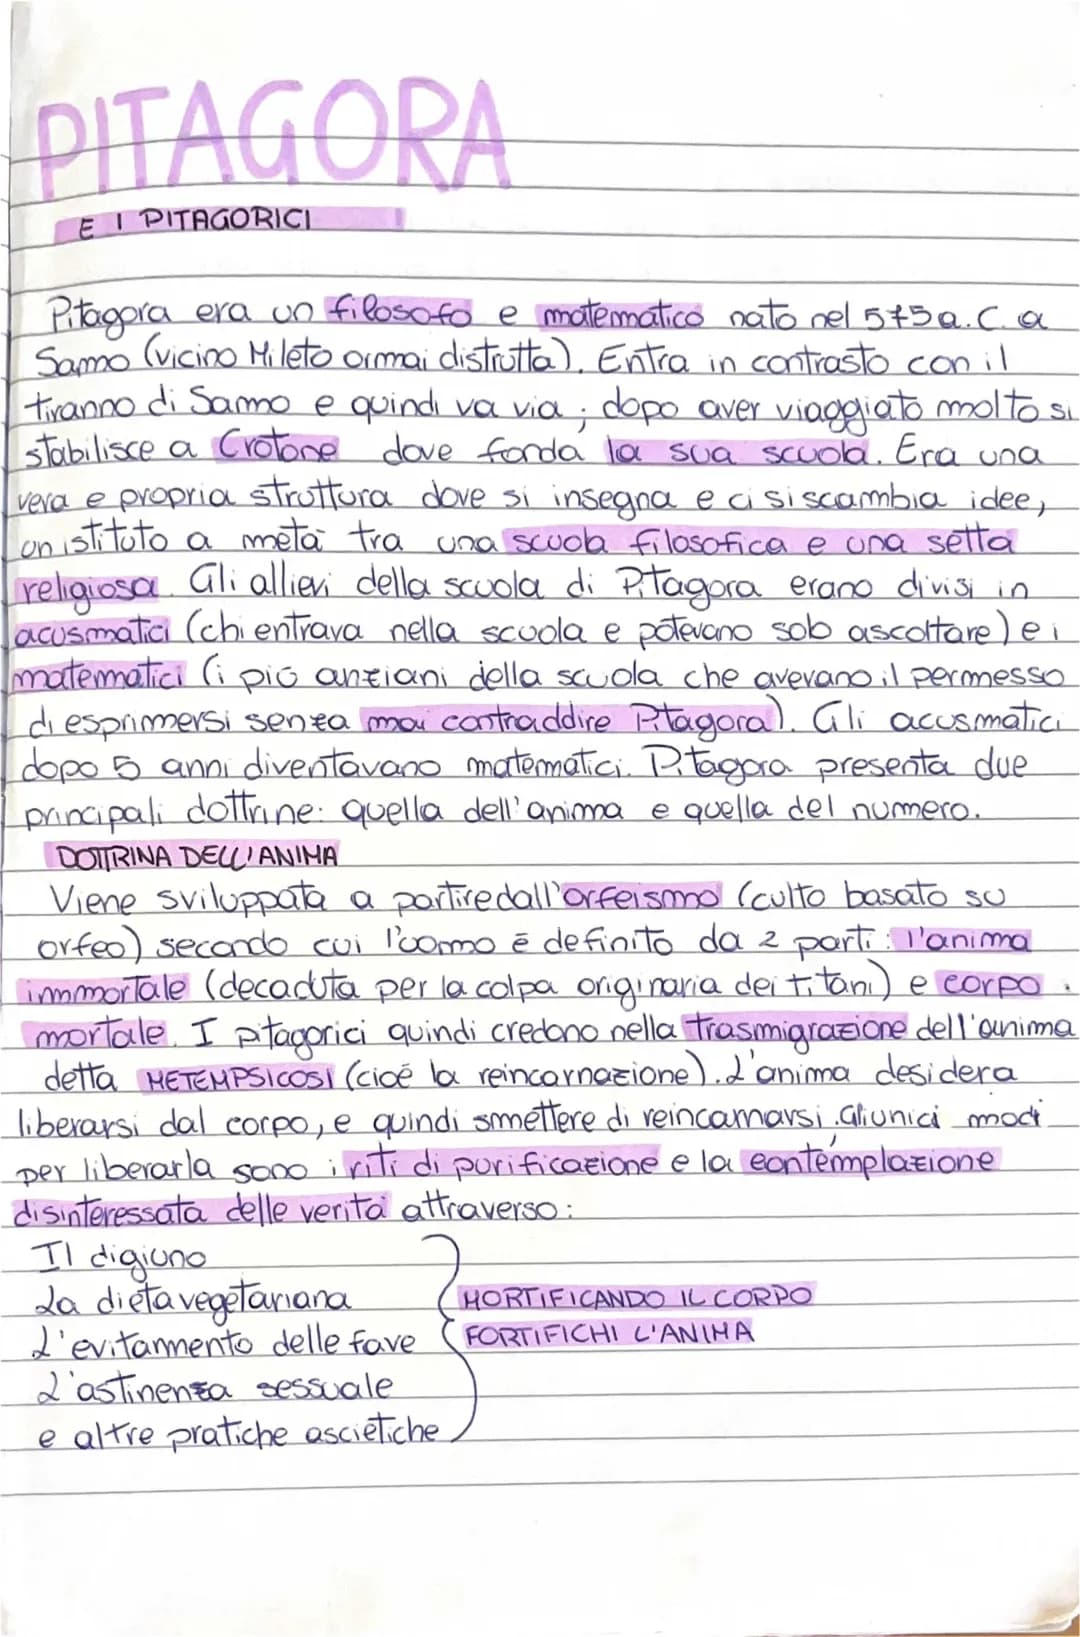 PITAGORA
E I PITAGORICI
Pitagora era un filosofo e matematico nato nel 575 a.C. a
Samo (vicino Mileto ormai distrutta). Entra in contrasto con il
tiranno di Samo e quindi va via, dopo aver viaggiato molto si
stabilisce a Crotone dove fonda la sua scuola. Era una
vera e propria struttura dove si insegna e ci si scambia idee,
un istituto a metà tra una scuola filosofica e una setta
religiosa. Gli allievi della scuola di Pitagora erano divisi in
acusmatici (chi entrava nella scuola e potevano solo ascoltare) e i
matematici (i più anziani della scuola che avevano il permesso
di esprimersi senza mai contraddire Pitagora). Gli acusmatici
dopo 5 anni diventavano matematici. Pitagora presenta due
principali dottrine: quella dell'anima e quella del numero.
DOTTRINA DELL'ANIMA
Viene sviluppata a partire dall'orfeismo (culto basato su
orfeo) secondo cui l'uomo è definito da 2 parti: l'anima
immortale (decaduta per la colpa originaria dei titani) e corpo
mortale. I pitagorici quindi credono nella trasmigrazione dell'anima
detta METEMPSICOSI (cioè la reincarnazione). L'anima desidera
liberarsi dal corpo, e quindi smettere di reincarnarsi. Gli unici modi
per liberarla sono i riti di purificazione e la contemplazione
disinteressata delle verità attraverso:
Il digiuno
La dieta vegetariana
MORTIFICANDO IL CORPO
L'evitamento delle fave
FORTIFICHI L'ANIMA
L'astinenza sessuale
e altre pratiche ascietiche